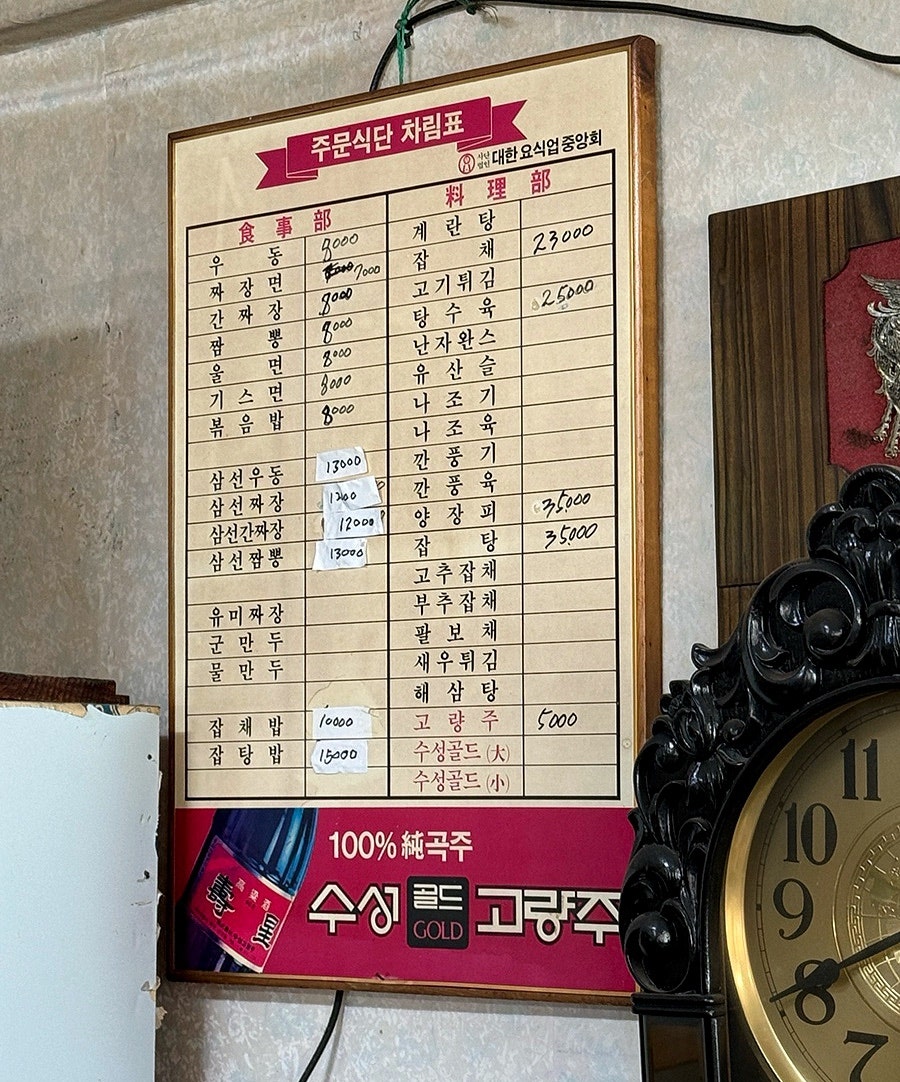 주문식단 차림표
사단법인 대한요식업중앙회
食事部
우동 8000
짜장면 7000
간짜장 8000
짬뽕 8000
울면 8000
기스면 8000
볶음밥 8000
삼선우동 13000
삼선짜장 1200
삼선간짜장 12000
삼선짬뽕 13000
유미짜장
군만두
물만두
잡채밥 10000
잡탕밥 15000
料理部
계란탕
잡채 23000
고기튀김
탕수육 25000
난자완스
유산슬
나조기
나조육
깐풍기
깐풍육
양장피 35000
잡탕 35000
고추잡채
부추잡채
팔보채
새우튀김
해삼탕
고량주 5000
수성골드(大)
수성골드(小)
100% 純곡주
수성 골드 GOLD 고량주
高粱酒
壽星
11
10
9
8
7